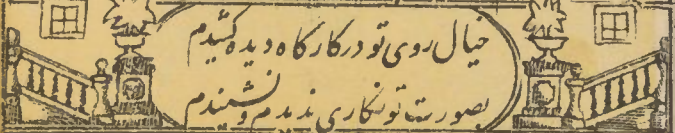 خیال روی تو در کارگاه دیده کشیدم
بصورت تو نگاری ندیدم و نشنیدم